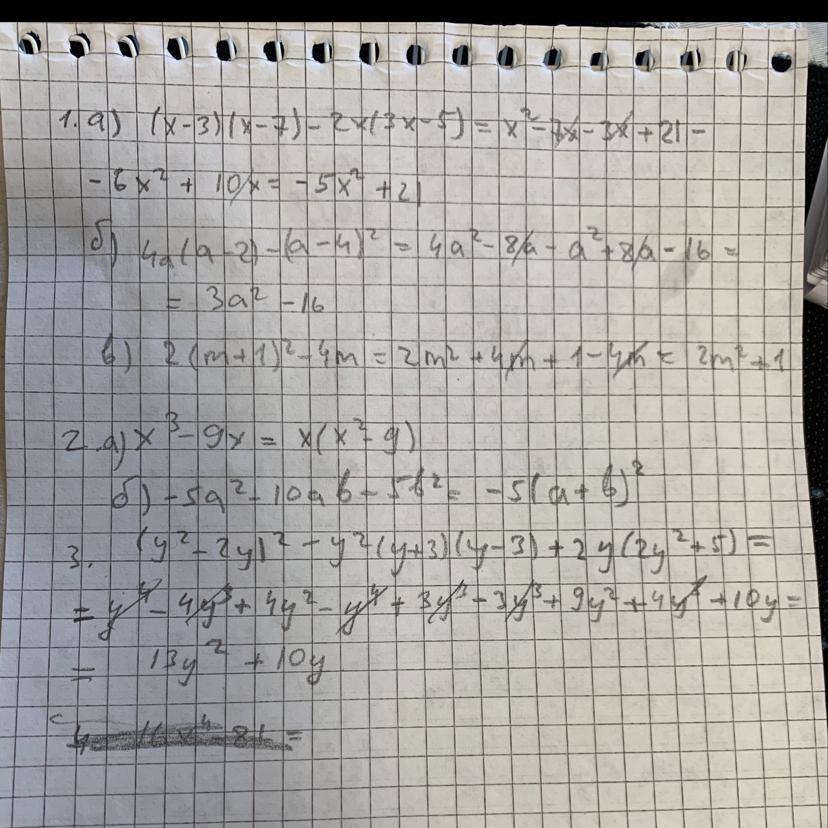 1. а) (x-3)(x-7)-2x(3x-5) = x²-7x-3x+21-
-6x² + 10x = -5x² +21
б) 4a(a-2)-(a-4)² = 4a²-8a-a²+8a-16 =
= 3a² -16
в) 2(m+1)²-4m = 2m²+4m+1-4m = 2m²+1
2. а) x³-9x = x(x²-9)
б) -5a²-10ab-5b² = -5(a+b)²
3. (y²-2y)²-y²(y+3)(y-3)+2y(2y²+5) =
= y⁴-4y³+4y²-y⁴+3y³-3y³+9y²+4y³+10y =
= 13y² +10y
4 16x⁴-81 =